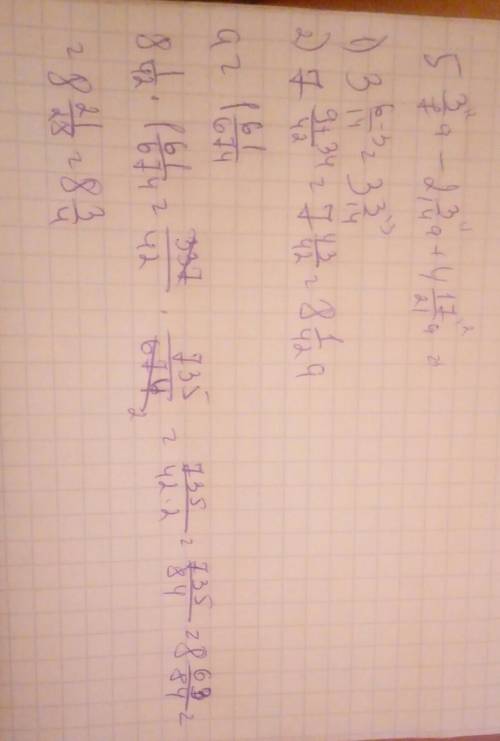 5 3/7 a - 2 3/14 a + 4 17/21 a =
1) 3 6-3/14 = 3 3/14
2) 7 9+34/42 = 7 43/42 = 8 1/42 a
a = 1 61/674
8 1/42 · 1 61/674 = 337/42 · 735/674 2 = 735/42·2 = 735/84 = 8 63/84 =
= 8 21/28 = 8 3/4